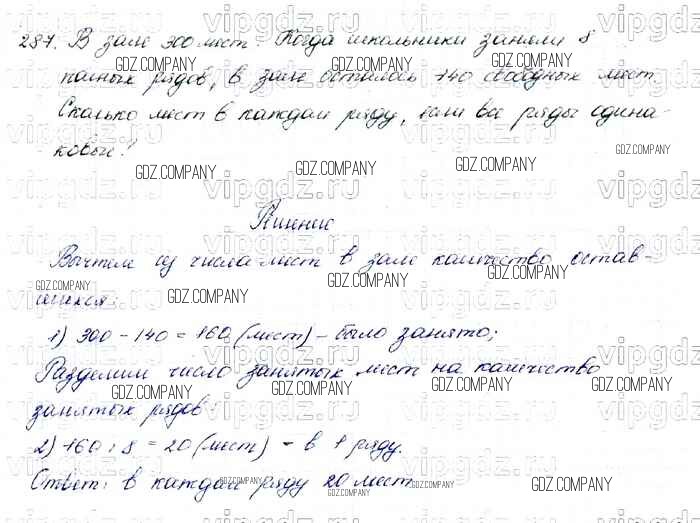 287. В зале 300 мест. Когда школьники заняли 8
полных рядов, в зале осталось 140 свободных мест.
Сколько мест в каждом ряду, если все ряды одина-
ковые?
Решение
Вычтем из числа мест в зале количество остав-
шихся:
1) 300 - 140 = 160 (мест) - было занято;
Разделим число занятых мест на количество
занятых рядов:
2) 160 : 8 = 20 (мест) - в 1 ряду.
Ответ: в каждом ряду 20 мест.